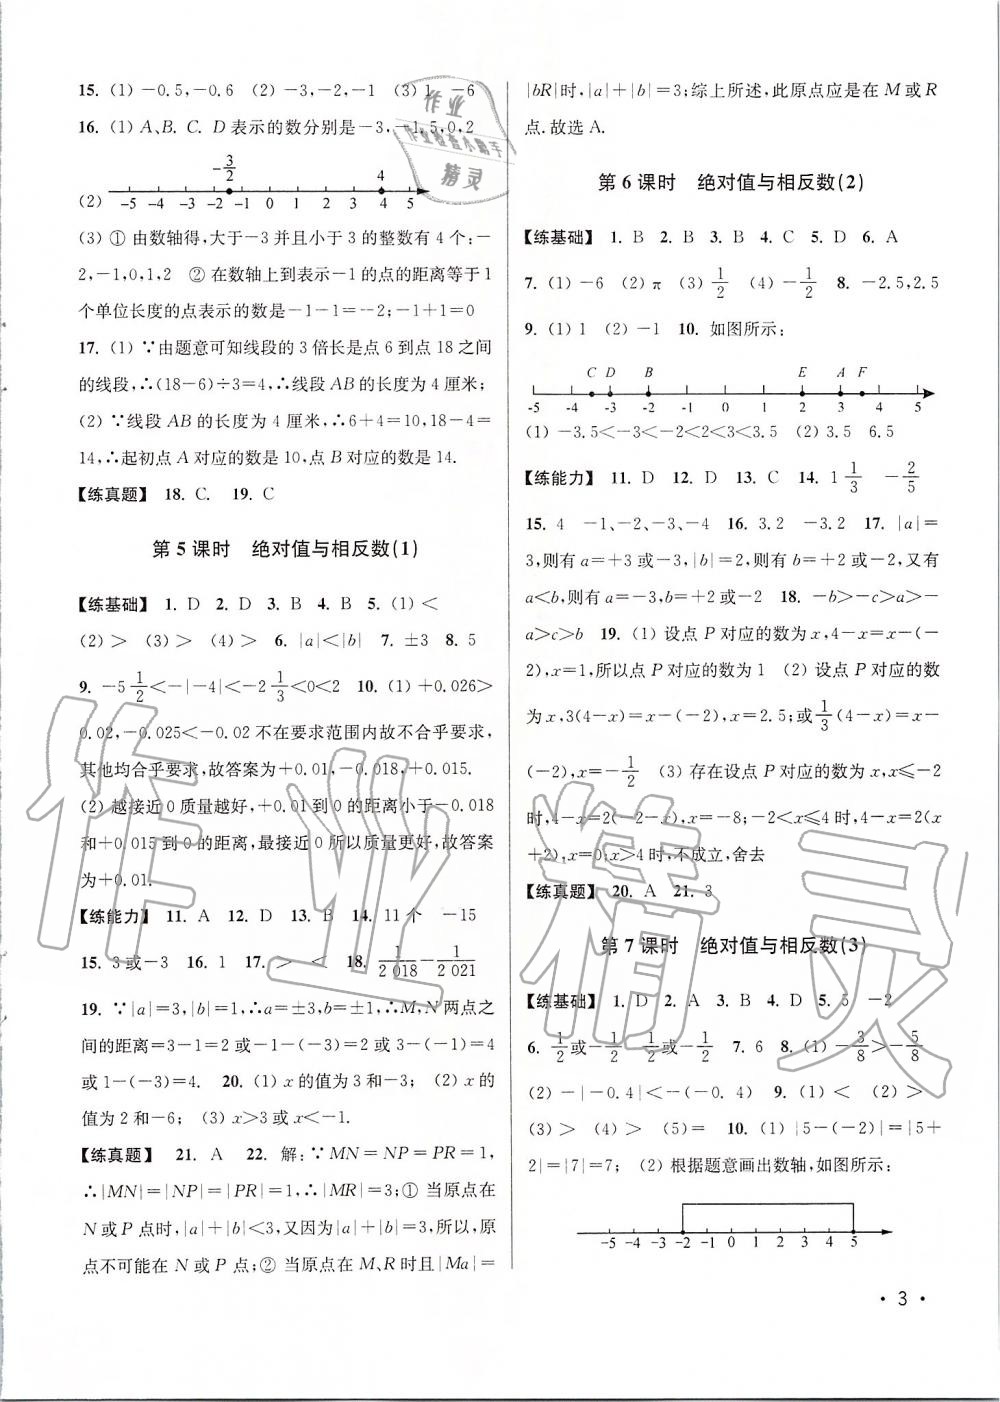 15. (1) －0.5,－0.6 (2) －3,－2,－1 (3) 1 －6
16. (1) A、B、C、D 表示的数分别是－3,－1.5,0,2
－3/2 4
(2) -5 -4 -3 -2 -1 0 1 2 3 4 5
(3) ① 由数轴得,大于－3 并且小于 3 的整数有 4 个:－
2,－1,0,1,2 ② 在数轴上到表示－1 的点的距离等于 1
个单位长度的点表示的数是－1－1＝－2;－1＋1＝0
17. (1) ∵由题意可知线段的 3 倍长是点 6 到点 18 之间
的线段,∴(18－6)÷3＝4,∴线段 AB 的长度为 4 厘米;
(2) ∵线段 AB 的长度为 4 厘米,∴6＋4＝10,18－4＝
14,∴起初点 A 对应的数是 10,点 B 对应的数是 14.
【练真题】 18. C. 19. C
第 5 课时 绝对值与相反数(1)
【练基础】 1. D 2. D 3. B 4. B 5. (1) ＜
(2) ＞ (3) ＞ (4) ＞ 6. |a|＜|b| 7. ±3 8. 5
9. －5 1/2＜－|－4|＜－2 1/3＜0＜2 10. (1) ＋0.026＞
0.02,－0.025＜－0.02 不在要求范围内故不合乎要求,
其他均合乎要求,故答案为＋0.01,－0.018,＋0.015.
(2) 越接近 0 质量越好,＋0.01 到 0 的距离小于－0.018
和＋0.015 到 0 的距离,最接近 0 所以质量更好,故答案
为＋0.01.
【练能力】 11. A 12. D 13. B 14. 11 个 －15
15. 3 或－3 16. 1 17. ＞ ＜ 18. 1/2 018－1/2 021
19. ∵|a|＝3,|b|＝1,∴a＝±3,b＝±1,∴M、N 两点之
间的距离＝3－1＝2 或－1－(－3)＝2 或 3－(－1)＝4
或 1－(－3)＝4. 20. (1) x 的值为 3 和－3; (2) x 的
值为 2 和－6; (3) x＞3 或 x＜－1.
【练真题】 21. A 22. 解:∵MN＝NP＝PR＝1,
∴|MN|＝|NP|＝|PR|＝1,∴|MR|＝3;① 当原点在
N 或 P 点时,|a|＋|b|＜3,又因为|a|＋|b|＝3,所以,原
点不可能在 N 或 P 点;② 当原点在 M、R 时且|Ma|＝
|bR|时,|a|＋|b|＝3;综上所述,此原点应是在 M 或 R
点.故选 A.
第 6 课时 绝对值与相反数(2)
【练基础】 1. B 2. B 3. B 4. C 5. D 6. A
7. (1) －6 (2) π (3) 1/2 (4) －1/2 8. －2.5,2.5
9. (1) 1 (2) －1 10. 如图所示:
C D B E A F
-5 -4 -3 -2 -1 0 1 2 3 4 5
(1) －3.5＜－3＜－2＜2＜3＜3.5 (2) 3.5 6.5
【练能力】 11. D 12. D 13. D 14. 1 1/3 －2/5
15. 4 －1、－2、－3、－4 16. 3.2 －3.2 17. |a|＝
3,则有 a＝＋3 或－3,|b|＝2,则有 b＝＋2 或－2,又有
a＜b,则有 a＝－3,b＝＋2 或－2 18. －b＞－c＞a＞－
a＞c＞b 19. (1) 设点 P 对应的数为 x,4－x＝x－(－
2),x＝1,所以点 P 对应的数为 1 (2) 设点 P 对应的数
为 x,3(4－x)＝x－(－2),x＝2.5;或1/3(4－x)＝x－
(－2),x＝－1/2 (3) 存在设点 P 对应的数为 x,x≤－2
时,4－x＝2(－2－x),x＝－8;－2＜x≤4 时,4－x＝2(x
＋2),x＝0;x＞4 时,不成立,舍去
【练真题】 20. A 21. 3
第 7 课时 绝对值与相反数(3)
【练基础】 1. D 2. A 3. B 4. D 5. 5 －2
6. 1/2或－1/2 1/2或－1/2 7. 6 8. (1) －3/8＞－5/8
(2) －|－0.4|＜－(－0.4) 9. (1) ＜ (2) ＞
(3) ＞ (4) ＞ (5)＝ 10. (1) |5－(－2)|＝|5＋
2|＝|7|＝7; (2) 根据题意画出数轴,如图所示:
-5 -4 -3 -2 -1 0 1 2 3 4 5
· 3 ·
作业
作业检查小助手
精灵
作业精灵